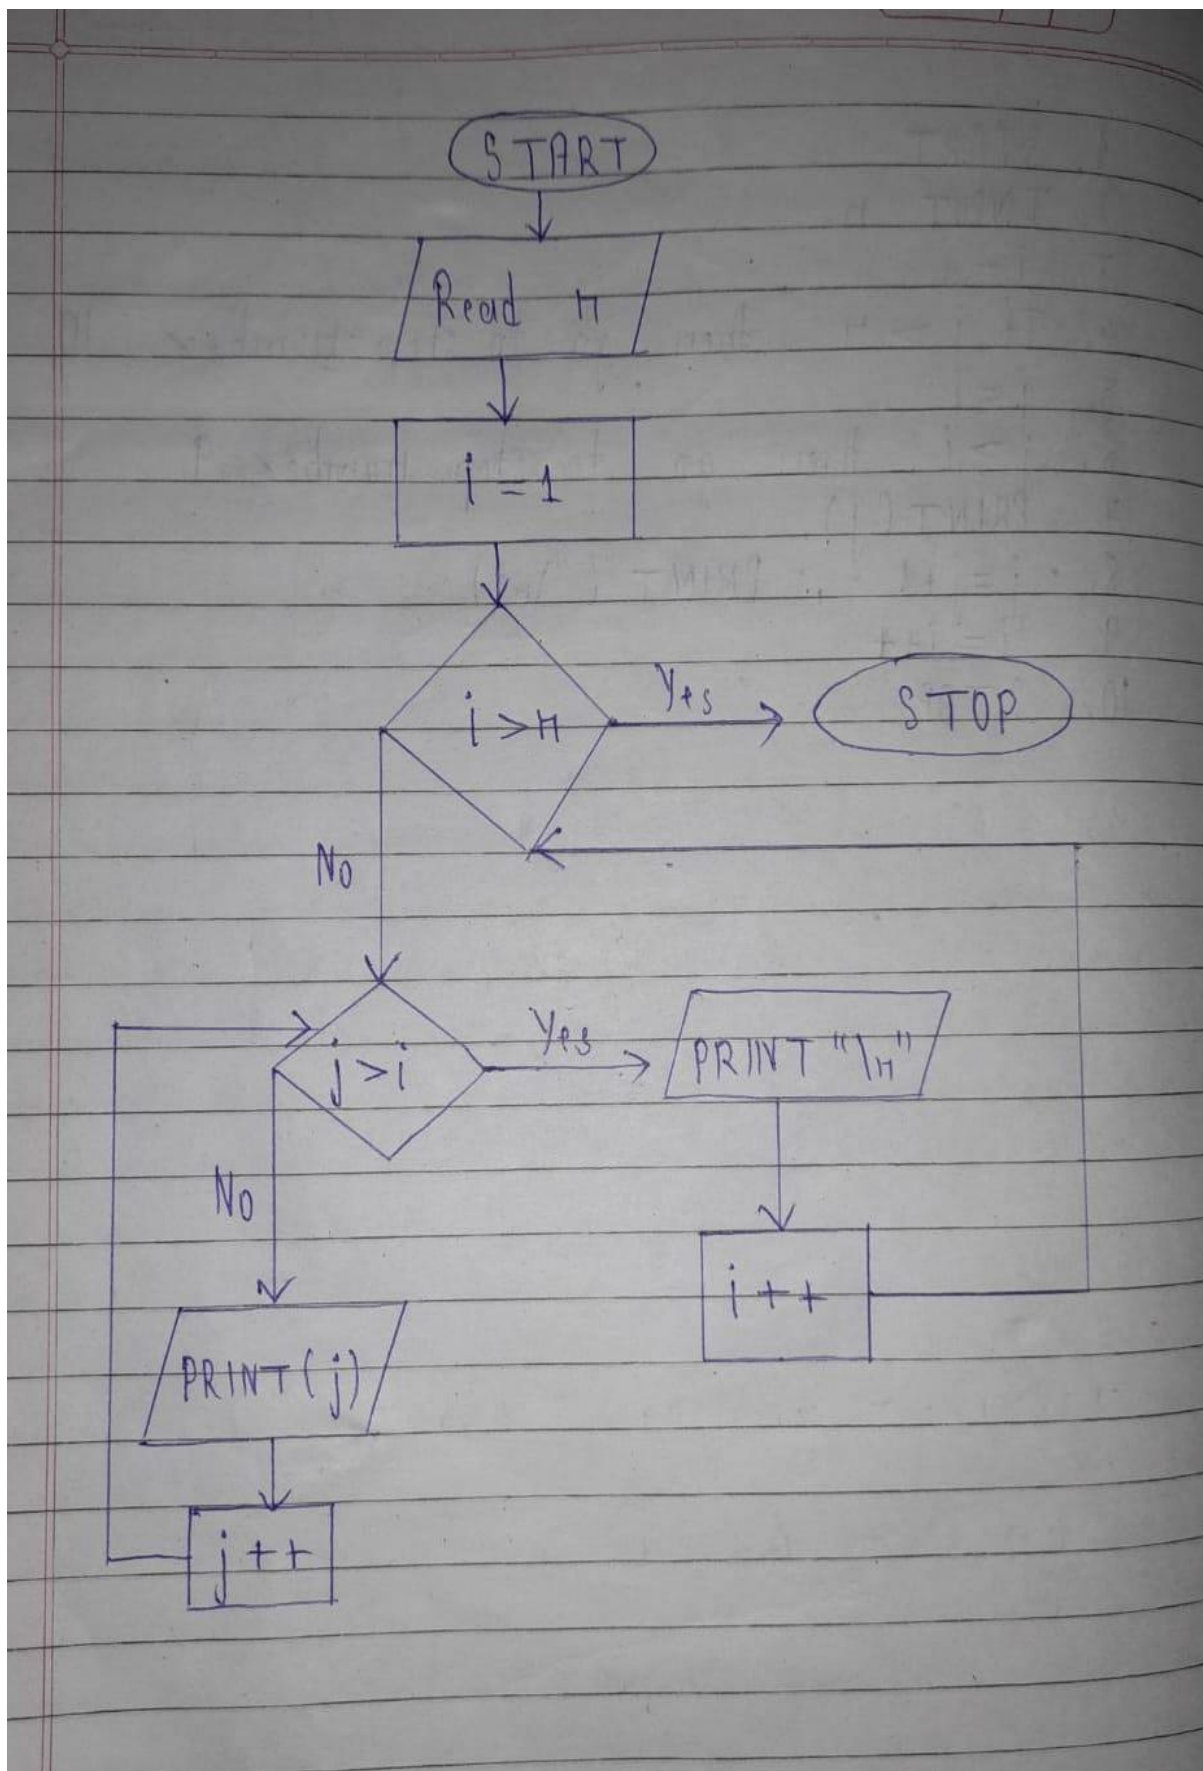 START
Read n
i = 1
i > n
Yes
STOP
No
j > i
Yes
PRINT "\n"
No
i++
PRINT (j)
j++